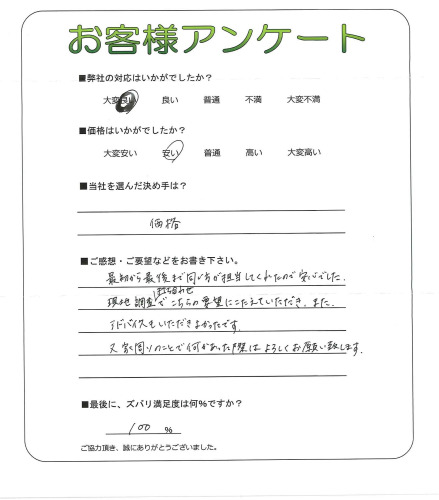 お客様アンケート
■弊社の対応はいかがでしたか？
大変良い 良い 普通 不満 大変不満
■価格はいかがでしたか？
大変安い 安い 普通 高い 大変高い
■当社を選んだ決め手は？
価格
■ご感想・ご要望などをお書き下さい。
最初から最後まで同じ方が担当してくれたので安心でした。
打ち合わせ
現地調査でこちらの要望にこたえていただき、また、
アドバイスもいただきよかったです。
又家周りのことで何かあった際はよろしくお願い致します。
■最後に、ズバリ満足度は何％ですか？
100 ％
ご協力頂き、誠にありがとうございました。